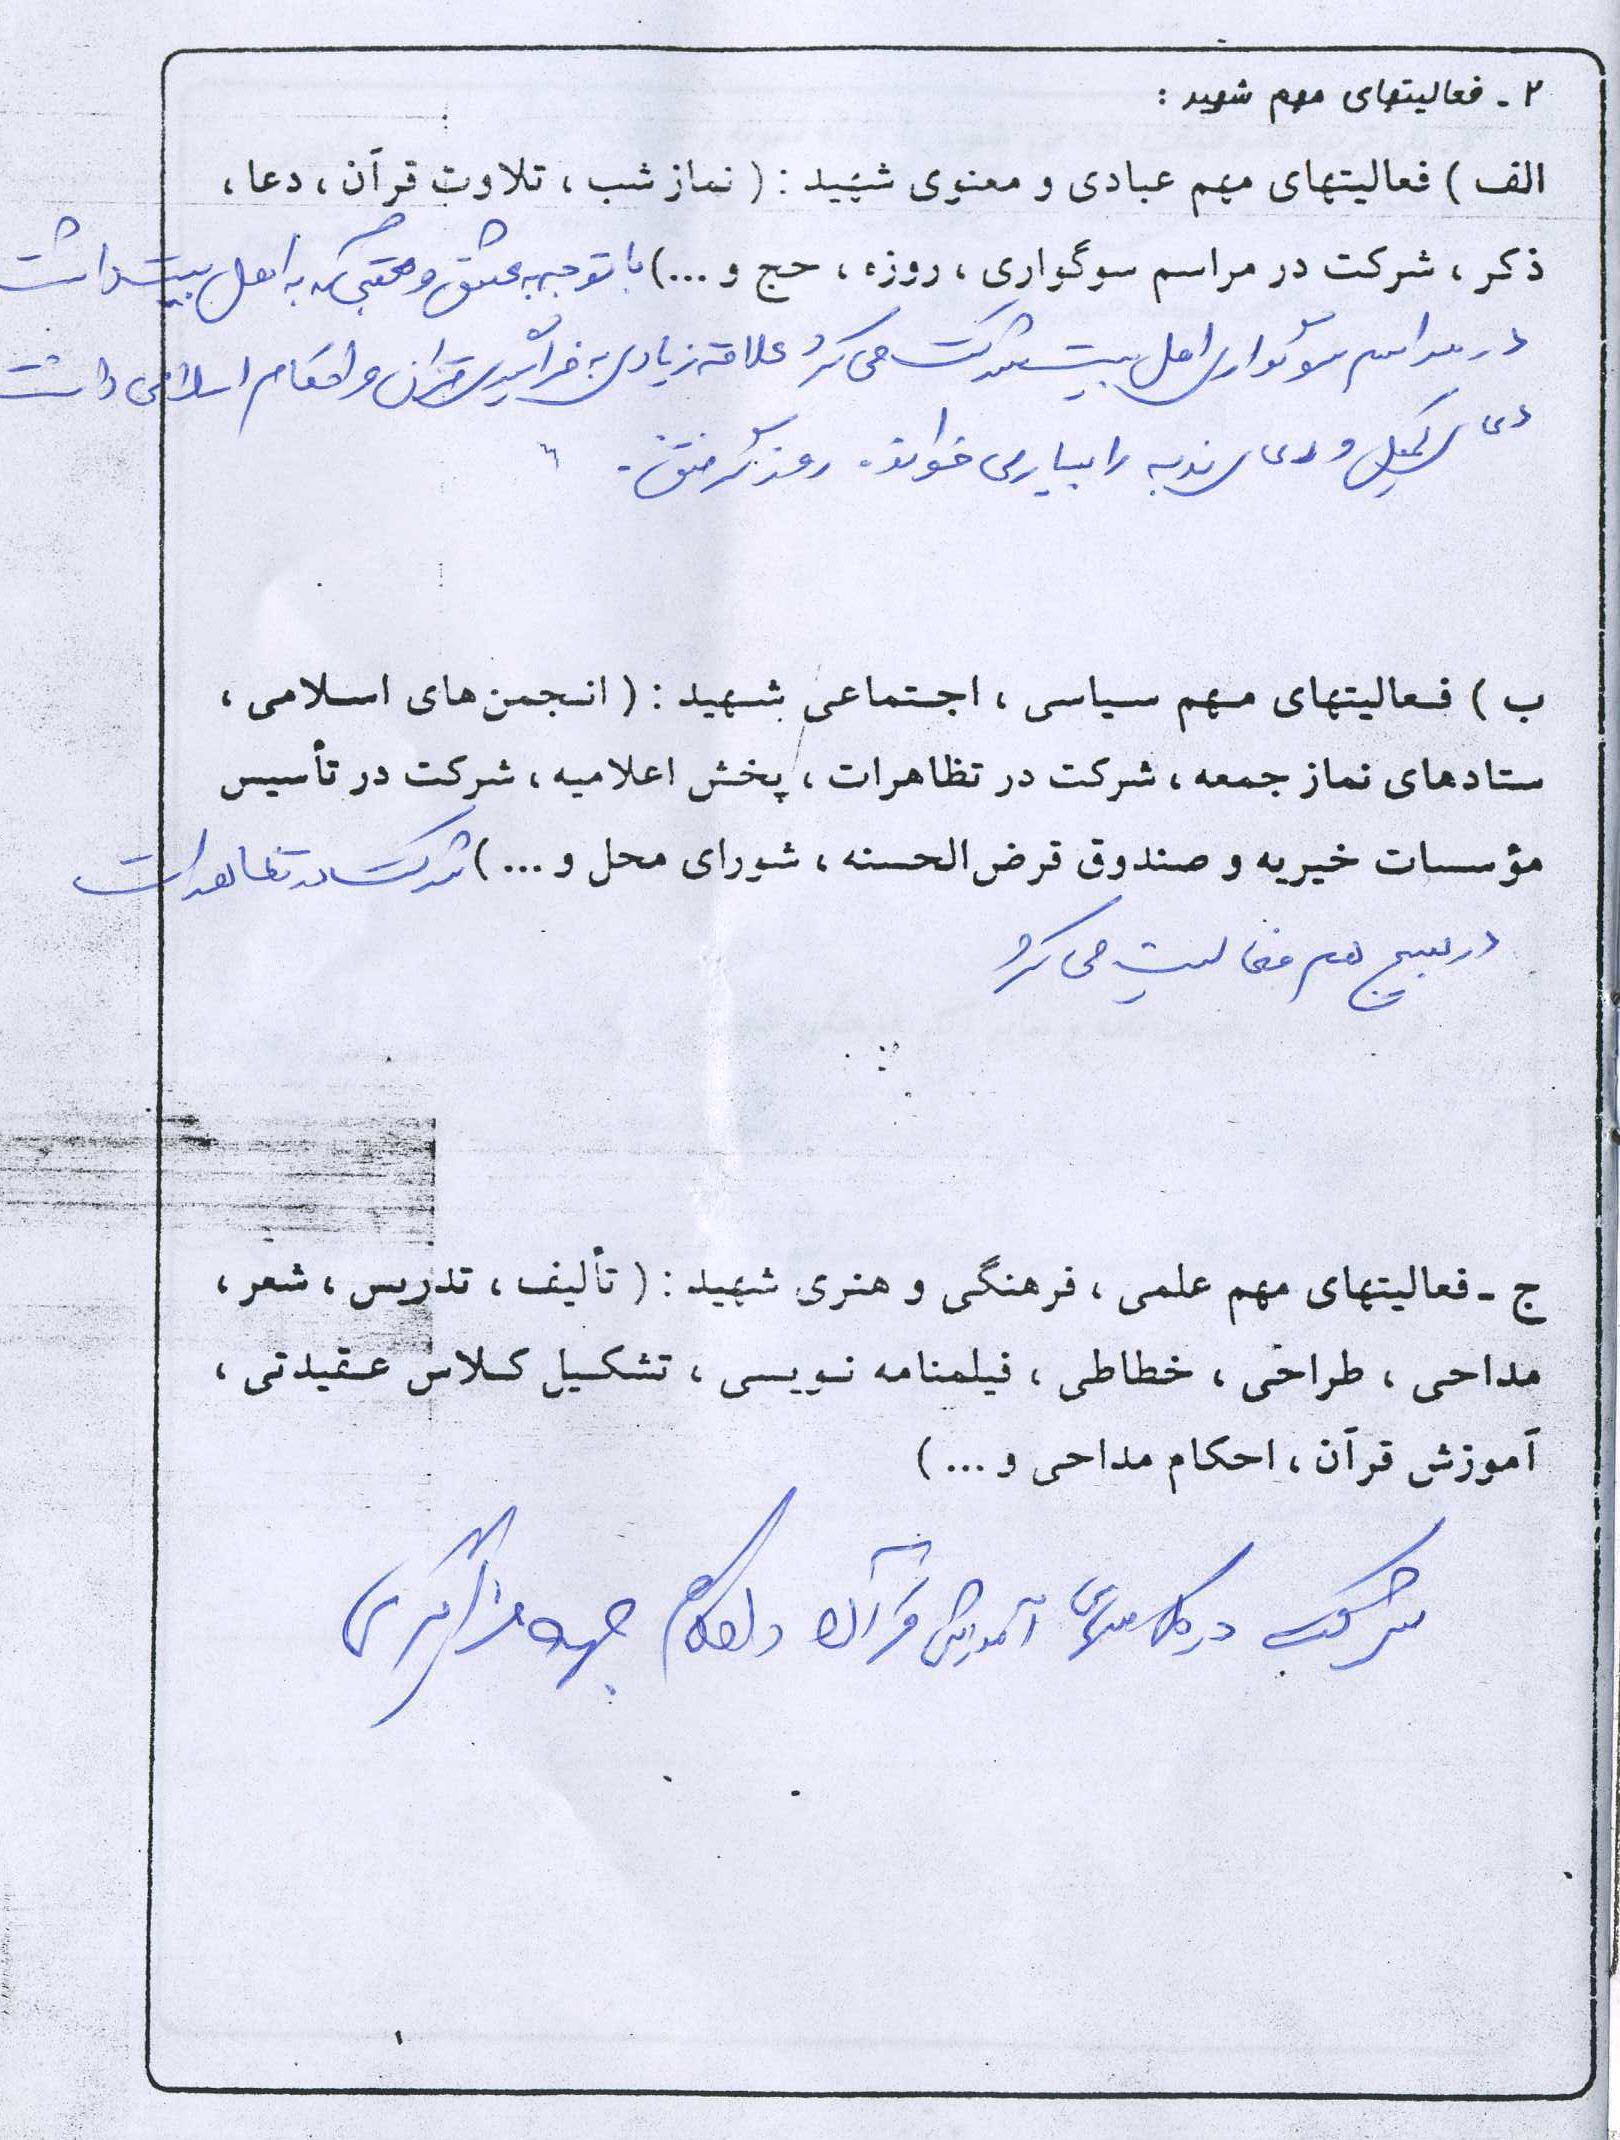 ۲ ـ فعالیتهای مهم شهید :
الف ) فعالیتهای مهم عبادی و معنوی شهید : ( نماز شب ، تلاوت قرآن ، دعا ،
ذکر ، شرکت در مراسم سوگواری ، روزه ، حج و ...) با توجه به عشق و محبتی که به اهل بیت داشت
در مراسم سوگواری اهل بیت شرکت می کرد علاقه زیادی به فراگیری قرآن و احکام اسلامی داشت
دعای کمیل و دعای ندبه را بسیار می خواند. روزه گرفتن .
ب ) فعالیتهای مهم سیاسی ، اجتماعی شهید : ( انجمن های اسلامی ،
ستادهای نماز جمعه ، شرکت در تظاهرات ، پخش اعلامیه ، شرکت در تأسیس
مؤسسات خیریه و صندوق قرض الحسنه ، شورای محل و ... ) شرکت در تظاهرات
در بسیج هم فعالیت می کرد
ج ـ فعالیتهای مهم علمی ، فرهنگی و هنری شهید : ( تألیف ، تدریس ، شعر ،
مداحی ، طراحی ، خطاطی ، فیلمنامه نویسی ، تشکیل کلاس عقیدتی ،
آموزش قرآن ، احکام مداحی و ... )
شرکت در کلاسهای آموزش قرآن و احکام جهت فراگیری